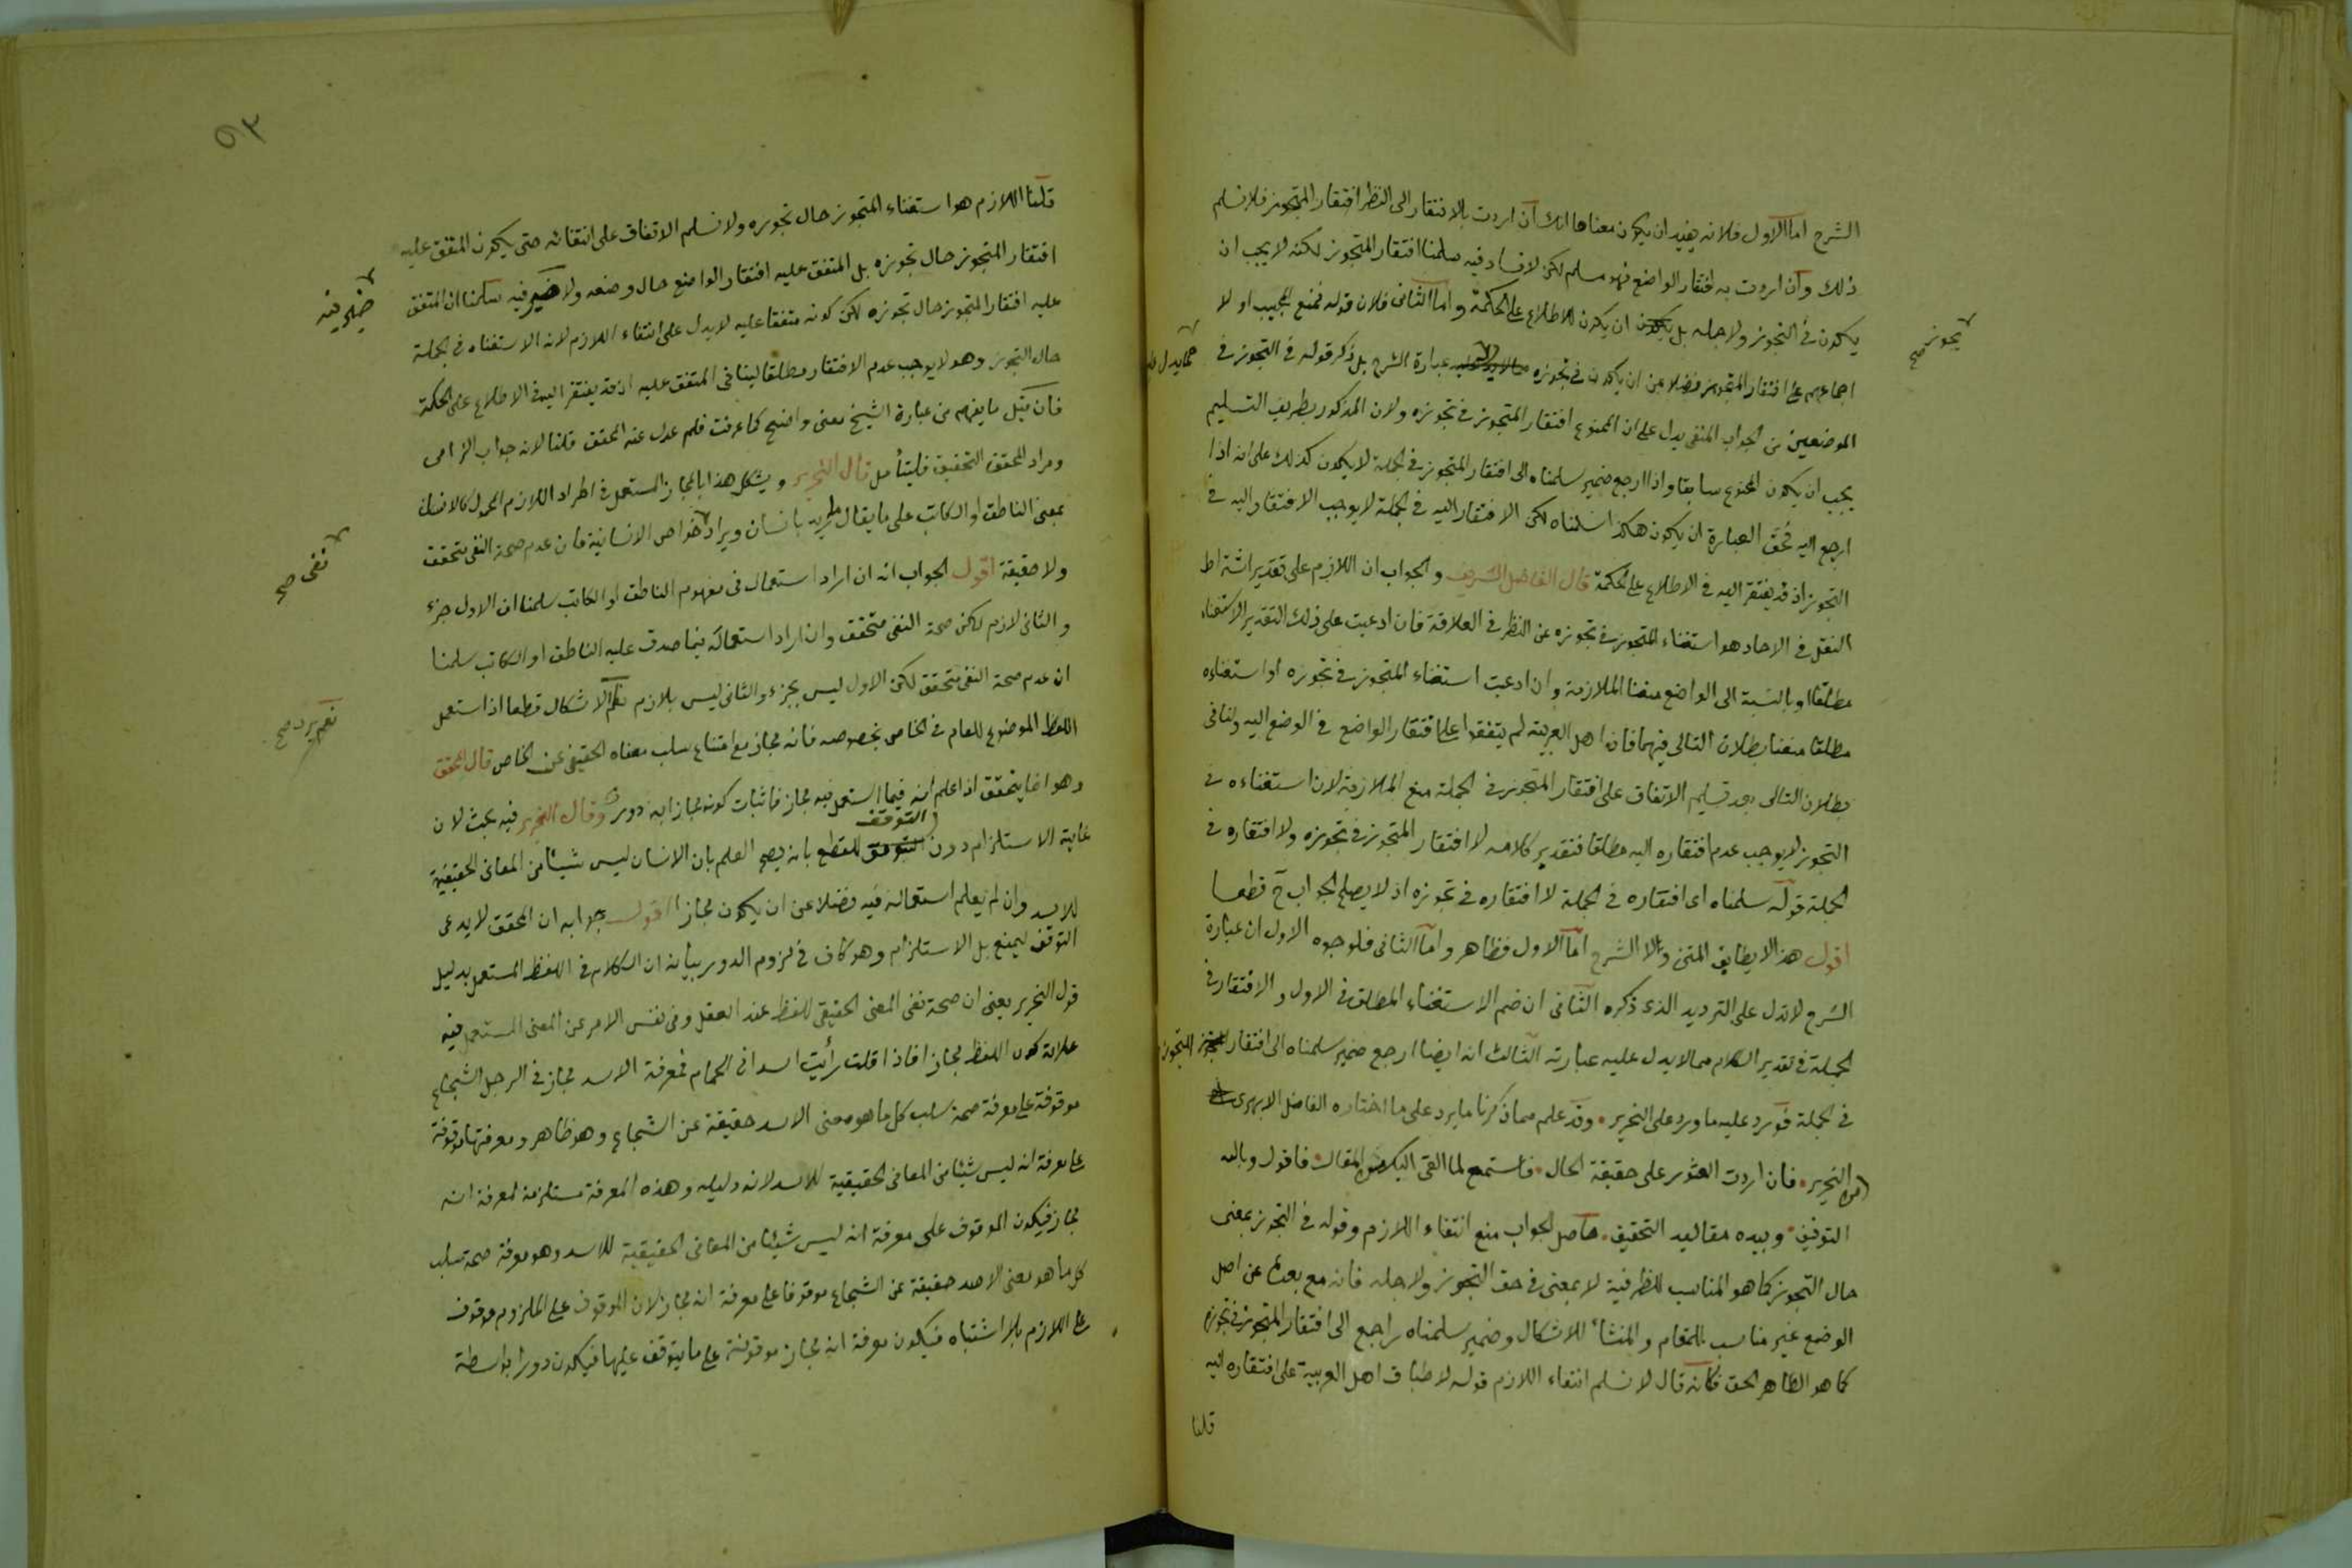 الشرح اما الاول فلانه يفيد ان يكون معناها انك ان اردت بالافتقار الى النظر افتقار المتجوز فلا نسلم
ذلك وان اردت به افتقار الواضع فهو مسلم لكن لا فساد فيه سلمنا افتقار المتجوز لكنه لا يجب ان
يكون في التجوز ولاجله بل ان يكون للاطلاع على الحكمة واما الثاني فلان قوله فمنع المجيب اولا
اجماعهم على افتقار المتجوز فضلا عن ان يكون في تجوزه عبارة الشرح بل ذكر قوله في التجوز في
الموضعين من الجواب المنفي يدل على ان الممنوع افتقار المتجوز في تجوزه ولان المذكور بطريق التسليم
يجب ان يكون الممنوع سابقا واذا ارجع ضمير سلمناه الى افتقار المتجوز في الجملة لا يكون كذلك على انه اذا
ارجع اليه فحق العبارة ان يكون هكذا سلمناه لكن الافتقار اليه في الجملة لا يوجب الافتقار اليه في
التجوز اذ قد يفتقر اليه في الاطلاع على الحكمة قال الفاضل الشريف والجواب ان اللازم على تقدير اشتراط
النقل في الاحاد هو استغناء المتجوز في تجوزه عن النظر في العلاقة فان ادعيت على ذلك التقدير الاستغناء
مطلقا او بالنسبة الى الواضع منعنا الملازمة وان ادعيت استغناء المتجوز في تجوزه او استغناءه
مطلقا منعنا بطلان التالي فيهما فان اهل العربية لم يتفقوا على افتقار الواضع في الوضع اليه ولنا في
بطلان التالي بعد تسليم الاتفاق على افتقار المتجوز في الجملة منع الملازمة لان استغناءه في
التجوز لا يوجب عدم افتقاره اليه مطلقا فتقدير كلامه لا افتقار المتجوز في تجوزه ولا افتقاره في
الجملة قوله سلمناه اى افتقاره في الجملة لا افتقاره في تجوزه اذ لا يصلح الجواب ح قطعا
اقول هذا لا يطابق المتن ولا الشرح اما الاول فظاهر واما الثاني فلوجوه الاول ان عبارة
الشرح لا تدل على الترديد الذى ذكره الثانى ان ضم الاستغناء المطلق في الاول والافتقار في
الجملة في تقدير الكلام مما لا يدل عليه عبارته الثالث انه ايضا ارجع ضمير سلمناه الى افتقار المتجوز
في الجملة فورد عليه ما ورد على النحرير وقد علم مما ذكرنا ما يرد على ما اختاره الفاضل الابهرى
النحرير فان اردت العثور على حقيقة الحال فاستمع لما القى اليك من المقال فاقول وبالله
التوفيق وبيده مقاليد التحقيق حاصل الجواب منع انتفاء اللازم وقوله في التجوز بمعنى
حال التجوز كما هو المناسب للظرفية لا بمعنى في حق التجوز ولاجله فانه مع بعده عن اصل
الوضع غير مناسب للمقام والمنشأ للاشكال وضمير سلمناه راجع الى افتقار المتجوز في تجوزه
كما هو الظاهر الحق فكانه قال لا نسلم انتفاء اللازم قوله لاطباق اهل العربية على افتقاره اليه
قلنا
تجوز صح
مما يدل عليه
٩٣
قلنا اللازم هو استغناء المتجوز حال تجوزه ولا نسلم الاتفاق على انتفائه حتى يكون المتفق عليه
افتقار المتجوز حال تجوزه بل المتفق عليه افتقار الواضع حال وضعه ولا ضير فيه سلمنا ان المتفق
عليه افتقار المتجوز حال تجوزه لكن كونه متفقا عليه لا يدل على انتفاء اللازم لانه الاستغناء في الجملة
حال التجوز وهو لا يوجب عدم الافتقار مطلقا لينافى المتفق عليه اذ قد يفتقر اليه في الاطلاع على الحكمة
فان قيل ما يفهم من عبارة الشيخ معنى واضح كما عرفت فلم عدل عنه المحقق قلنا لانه جواب الزامى
ومراد المحقق التحقيق فليتأمل قال النحرير ويشكل هذا بالمجاز المستعمل في اطراد اللازم المحمول كالانسان
بمعنى الناطق او الكاتب على ما يقال ما زيد بانسان ويراد خواص الانسانية فان عدم صحة النفى متحقق
ولا حقيقة اقول الجواب انه ان اراد استعماله في مفهوم الناطق او الكاتب سلمنا ان الاول جزء
والثانى لازم لكن صحة النفى متحقق وان اراد استعماله فيما صدق عليه الناطق او الكاتب سلمنا
ان عدم صحة النفى متحقق لكن الاول ليس بجزء والثانى ليس بلازم نعم الاشكال قطعا اذا استعمل
اللفظ الموضوع للعام في الخاص بخصوصه فانه مجاز مع امتناع سلب معناه الحقيقي عن الخاص قال المحقق
وهو انما يتحقق اذا علم انه فيما استعمل فيه مجاز فاثبات كونه مجازا به دور وقال النحرير فيه بحث لان
غاية الاستلزام دون التوقف للقطع بانه يصح العلم بان الانسان ليس شيئا من المعانى الحقيقية
للاسد وان لم يعلم استعماله فيه فضلا عن ان يكون مجازا اقول جوابه ان المحقق لا يدعى
التوقف ليمنع بل الاستلزام وهو كاف في لزوم الدور بيانه ان الكلام في اللفظ المستعمل بدليل
قول النحرير يعنى ان صحة نفى المعنى الحقيقى للفظ عند العقل وفى نفس الامر عن المعنى المستعمل فيه
علامة كون اللفظ مجازا فاذا قلت رأيت اسدا في الحمام فمعرفة الاسد مجاز في الرجل الشجاع
موقوفة على معرفة صحة سلب كل ما هو معنى الاسد حقيقة عن الشجاع وهو ظاهر ومعرفتها موقوفة
على معرفة انه ليس شيئا من المعانى الحقيقية للاسد لانه دليله وهذه المعرفة مستلزمة لمعرفة انه
مجاز فيكون الموقوف على معرفة انه ليس شيئا من المعانى الحقيقية للاسد وهو معرفة صحة سلب
كل ما هو معنى الاسد حقيقة عن الشجاع موقوفا على معرفة انه مجاز لان الموقوف على الملزوم موقوف
على اللازم بلا اشتباه فيكون معرفة انه مجاز موقوفة على ما يتوقف عليها فيكون دورا بواسطة
ضير فيه
نفى صح